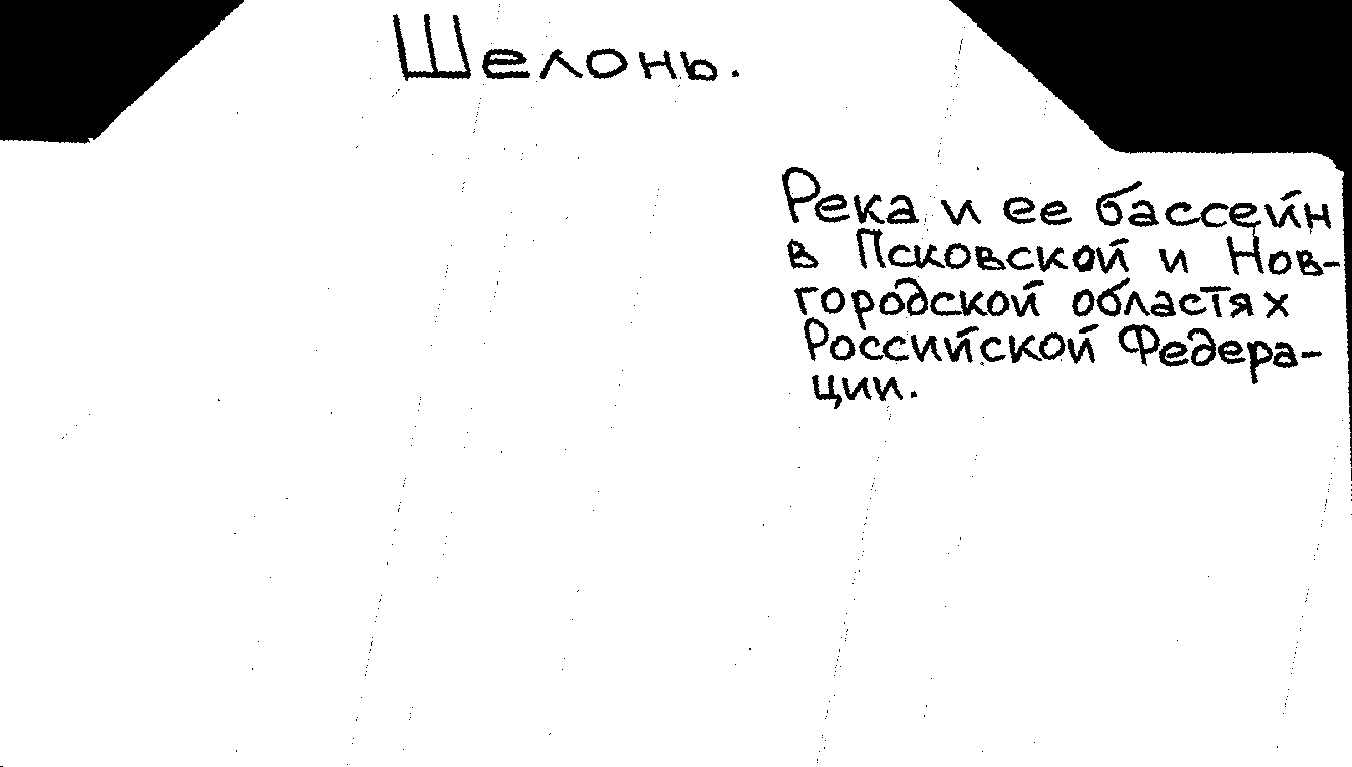 Шелонь.
Река и ее бассейн
в Псковской и Нов-
городской областях
Российской Федера-
ции.